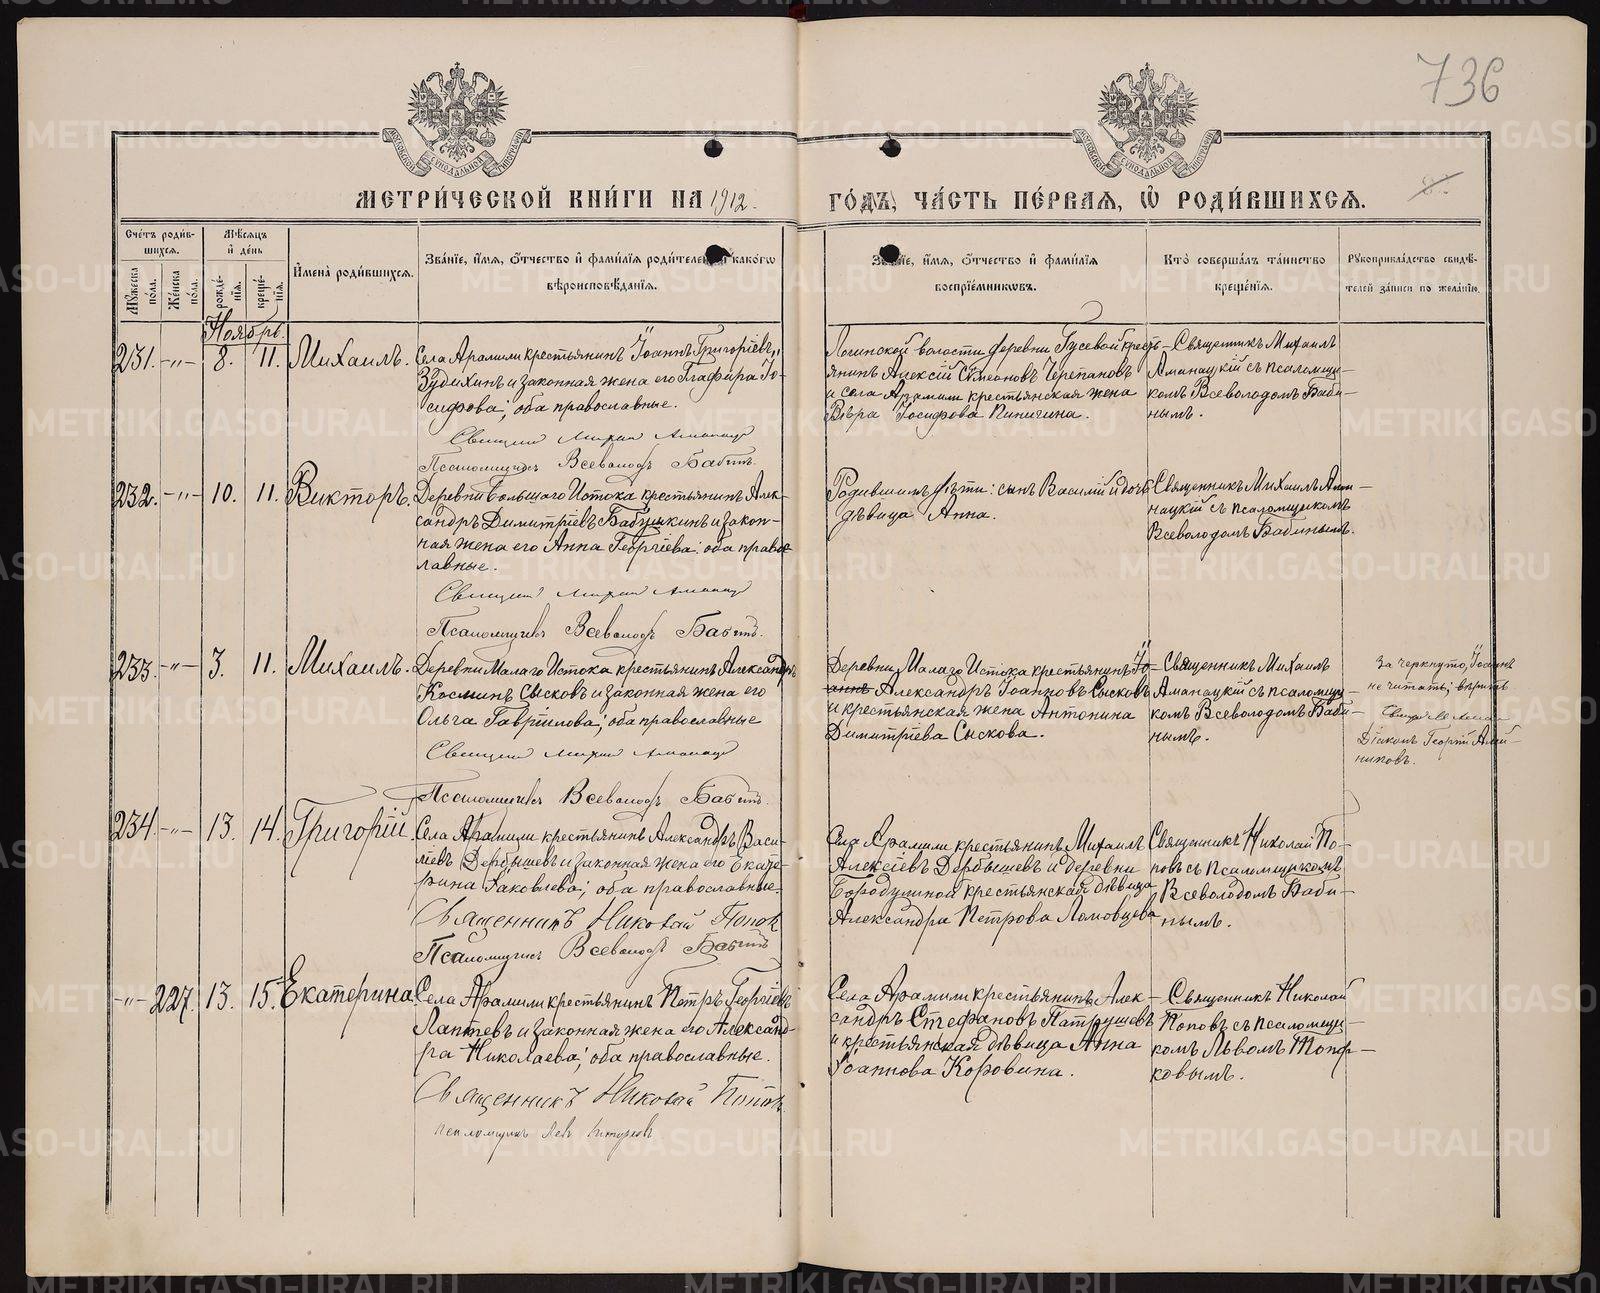 736
МЕТРИ́ЧЕСКОЙ КНИ́ГИ НА 1912
ГО́ДЪ, ЧА́СТЬ ПЕ́РВАЯ, Ѡ҆ РОДИ́ВШИХСЯ.
Сче́тъ роди́в-
шихся.
Мꙋ́жеска по́ла.
Же́нска по́ла.
Мѣ́сяцъ
и҆ де́нь
рожде́-
нїя.
креще́-
нїя.
И҆мена̀ роди́вшихся.
Зва́нїе, и҆́мя, ѻ҆́тчество и҆ фами́лїя роди́телей и҆ како́гѡ
вѣроисповѣ́данїя.
Зва́нїе, и҆́мя, ѻ҆́тчество и҆ фами́лїя
воспрїе́мникѡвъ.
Кто̀ соверша́лъ та́инство
креще́нїя.
Рꙋкоприкла́дство свидѣ́-
телей за́писи по жела́нїю.
Ноябрь.
231. -"- 8. 11. Михаилъ.
Села Арамили крестьянинъ Іоаннъ Григоріевъ
Зудихинъ и законная жена его Глафира Іо-
сифова; оба православные.
Псаломщикъ Всеволодъ Бабинъ.
Логиновской волости деревни Гусевой кресть-
янинъ Алексій Сѵмеоновъ Черепановъ
и села Арамили крестьянская жена
Вѣра Іосифова Пиничина.
Священникъ Михаилъ
Аманацкій съ псаломщи-
комъ Всеволодомъ Баби-
нымъ.
232. -"- 10. 11. Викторъ.
Деревни Большаго Истока крестьянинъ Алек-
сандръ Димитріевъ Бабушкинъ и закон-
ная жена его Анна Георгіева; оба право-
славные.
Псаломщикъ Всеволодъ Бабинъ.
Родившимъ дѣти: сынъ Василій и дочь
дѣвица Анна.
Священникъ Михаилъ Ама-
нацкій съ псаломщикомъ
Всеволодомъ Бабинымъ.
233. -"- 3. 11. Михаилъ.
Деревни Малаго Истока крестьянинъ Александръ
Косминъ Сысковъ и законная жена его
Ольга Гавріилова; оба православные
Псаломщикъ Всеволодъ Бабинъ.
Деревни Малаго Истока крестьянинъ Іо-
аннъ Александръ Іоанновъ Сысковъ
и крестьянская жена Антонина
Димитріева Сыскова.
Священникъ Михаилъ
Аманацкій съ псаломщи-
комъ Всеволодомъ Баби-
нымъ.
Зачеркнуто, Іоаннъ
не читать; вѣрить
Діаконъ Георгій Алей-
никовъ.
234. -"- 13. 14. Григорій.
Села Арамили крестьянинъ Александръ Васи-
ліевъ Дербышевъ и законная жена его Екате-
рина Іаковлева; оба православные.
Священникъ Николай Поповъ
Псаломщикъ Всеволодъ Бабинъ
Села Арамили крестьянинъ Михаилъ
Алексіевъ Дербышевъ и деревни
Бородулиной крестьянская дѣвица
Александра Петрова Ломовцева
Священникъ Николай По-
повъ съ псаломщикомъ
Всеволодомъ Баби-
нымъ.
-"- 227. 13. 15. Екатерина.
Села Арамили крестьянинъ Петръ Георгіевъ
Лаптевъ и законная жена его Александ-
ра Николаева; оба православные.
Священникъ Николай Поповъ.
псаломщикъ Левъ
Села Арамили крестьянинъ Алек-
сандръ Стефановъ Патрушевъ
и крестьянская дѣвица Анна
Іоаннова Коровина.
Священникъ Николай
Поповъ съ псаломщи-
комъ Львомъ
METRIKI.GASO-URAL.RU